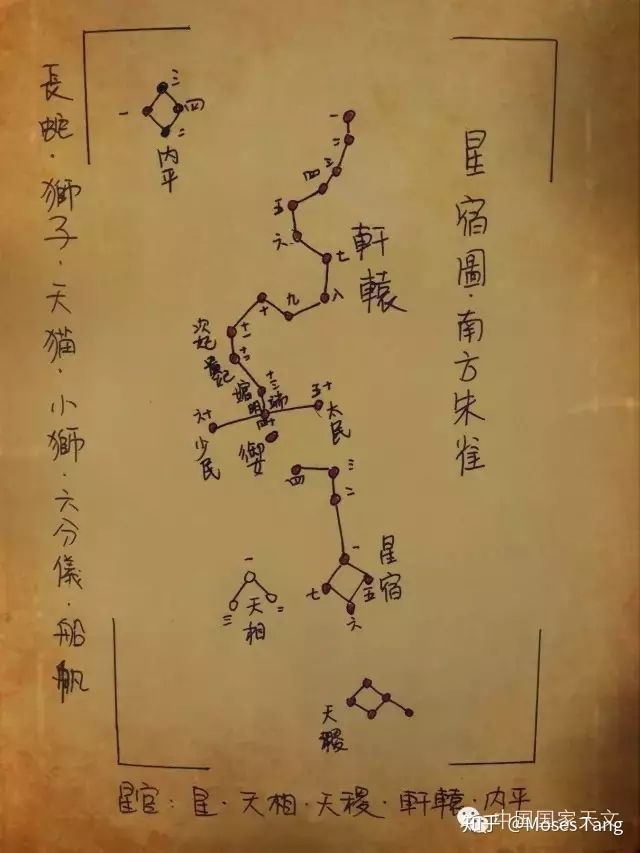 星宿圖·南方朱雀
長蛇·獅子·天貓·小獅·六分儀·船帆
三
一
四
二
内平
一
二
三
四
五
六
七
八
九
十
軒轅
十一
次妃
十二
十三
端明
十四
十五
太民
十六
少民
御女
四
三
二
一
星宿
七
五
六
一
天相
三
二
天稷
星官：星·天相·天稷·軒轅·内平
中国国家天文
知乎 @Moses Tang